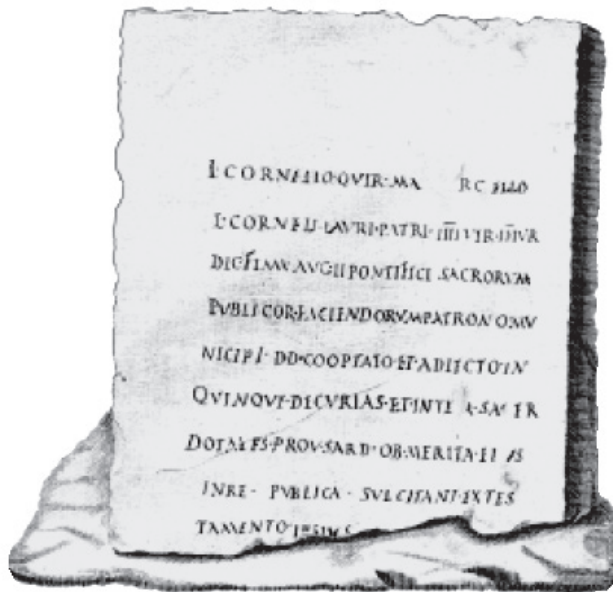 L·CORNELIO·QVIR·MA RCELLO
L·CORNELI·LAVRI·PATRI·IIIIVIR·IIIIVR
DIC·FLAM·AVGII PONTIFICI SACRORVM
PVBLICOR·FACIENDORVM PATRONO MV
NICIPI·DD·COOPTATO·ET·ADIECTO·IN
QVINQVE·DECVRIAS·ET·INTE R·SACER
DOTALES·PROV·SARD·OB·MERITA·EIVS
INRE·PVBLICA·SVLCITANI·EXTES
TAMENTO·IPSIVS